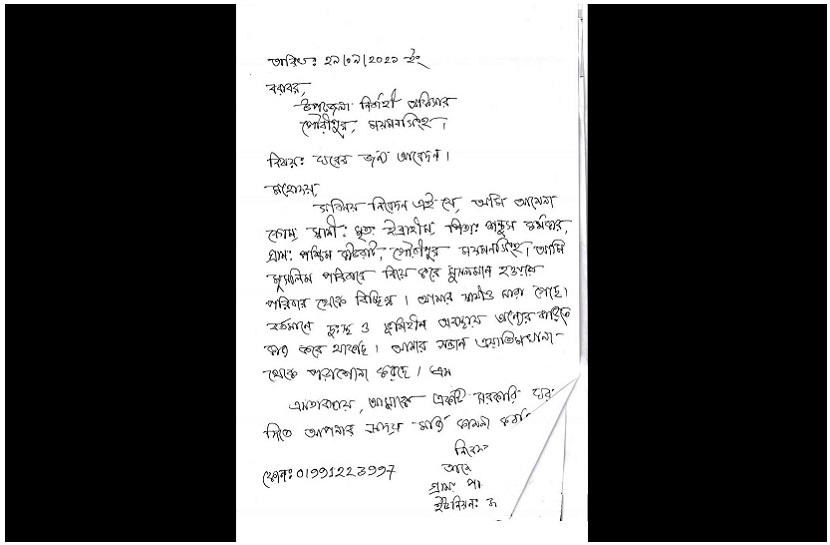 তারিখ: ২৯/০৯/২০২১ ইং
বরাবর,
উপজেলা নির্বাহী অফিসার
গৌরীপুর, ময়মনসিংহ।
বিষয়: ঘরের জন্য আবেদন।
মহোদয়,
সবিনয় নিবেদন এই যে, আমি আয়েশা
বেগম, স্বামী: মৃত: ইব্রাহীম, পিতা: কর্মকার,
গ্রাম: পশ্চিম গৌরীপুর ময়মনসিংহ। আমি
মুসলিম পরিবারে বিয়ে করে মুসলমান হওয়ায়
পরিবার থেকে বিচ্ছিন্ন। আমার স্বামীও মারা গেছে।
বর্তমানে দুঃস্থ ও ভূমিহীন অবস্থায় অন্যের বাড়িতে
কাজ করে থাকছি। আমার সন্তান এয়াতিমখানা-
থেকে পড়াশোনা করছে।
এমতাবস্থায়, আমাকে একটি সরকারি ঘর
দিতে আপনার সদয় মর্জি কামনা করছি
নিবে
আয়ে
ফোন: 01991223997
গ্রাম: পা
ইউনিয়ন: